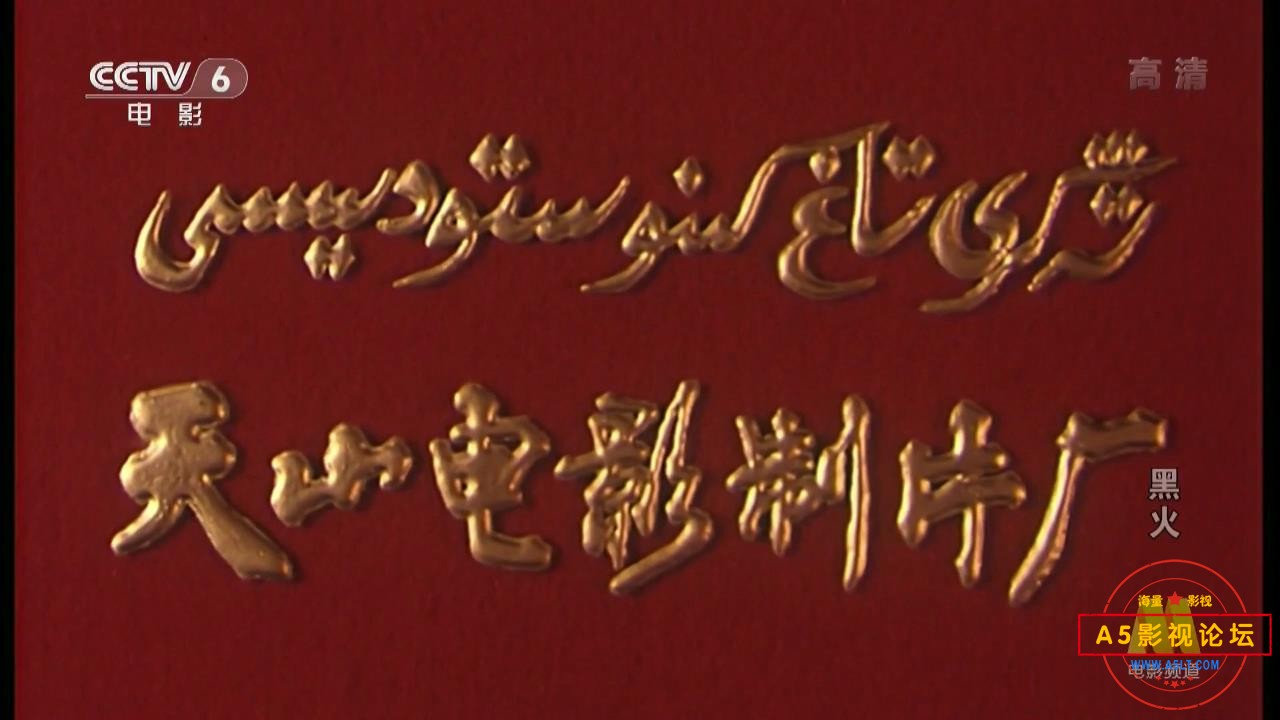 CCTV 6
电影
高清
تەڭرى تاغ كىنو ستودىيىسى
天山电影制片厂
黑火
海量 影视
A5影视论坛
WWW.A5LT.COM
电影频道